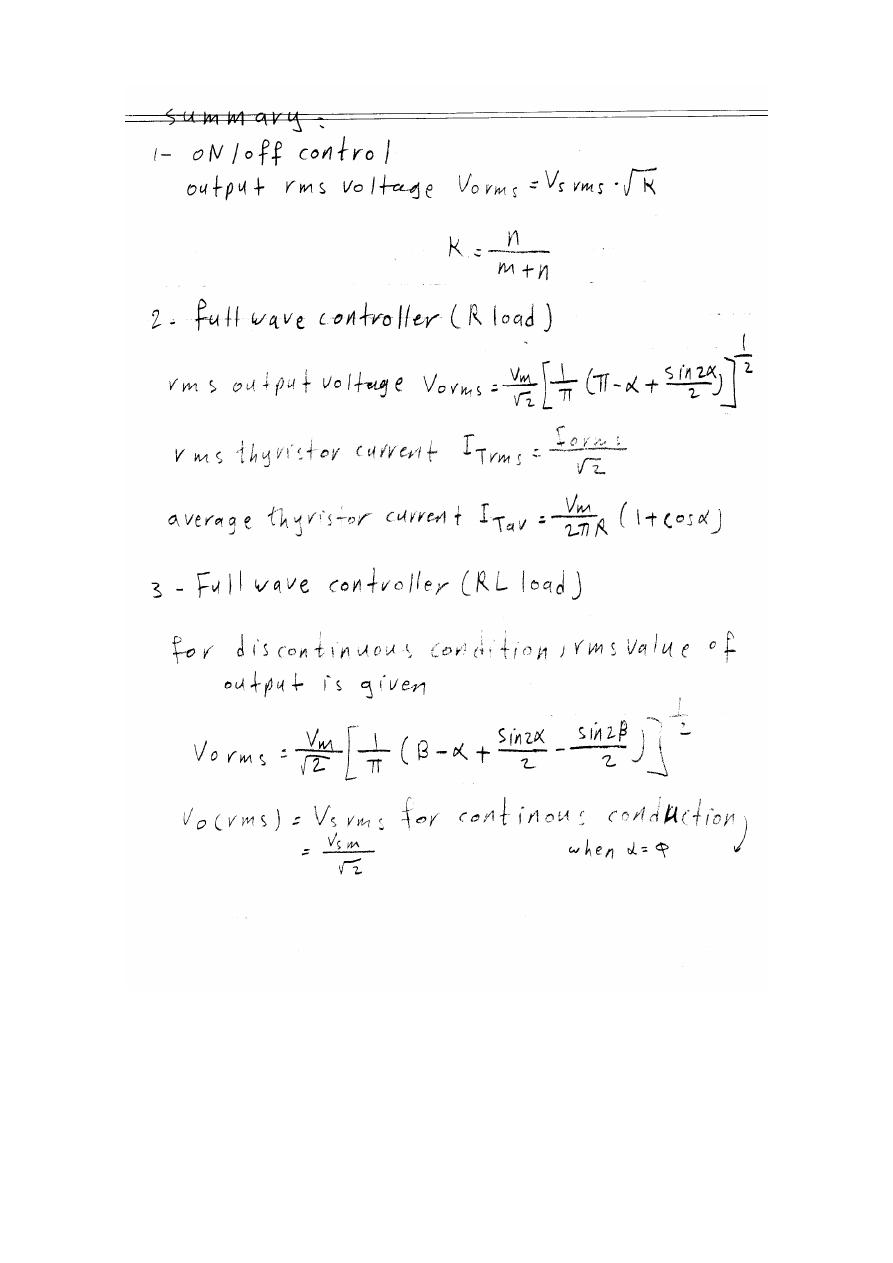 summary:
1- ON/off control
output rms voltage Vorms = Vs rms · √K
K = n / (m+n)
2- full wave controller (R load)
rms output voltage Vorms = Vm/√2 [1/π (π-α + sin2α/2)]^1/2
rms thyristor current ITrms = Iorms/√2
average thyristor current ITav = Vm/2πR (1+cosα)
3- Full wave controller (RL load)
for discontinuous condition, rms value of
output is given
Vorms = Vm/√2 [1/π (β-α + sin2α/2 - sin2β/2)]^1/2
Vo(rms) = Vs rms for continous conduction,
= Vsm/√2 when α=φ